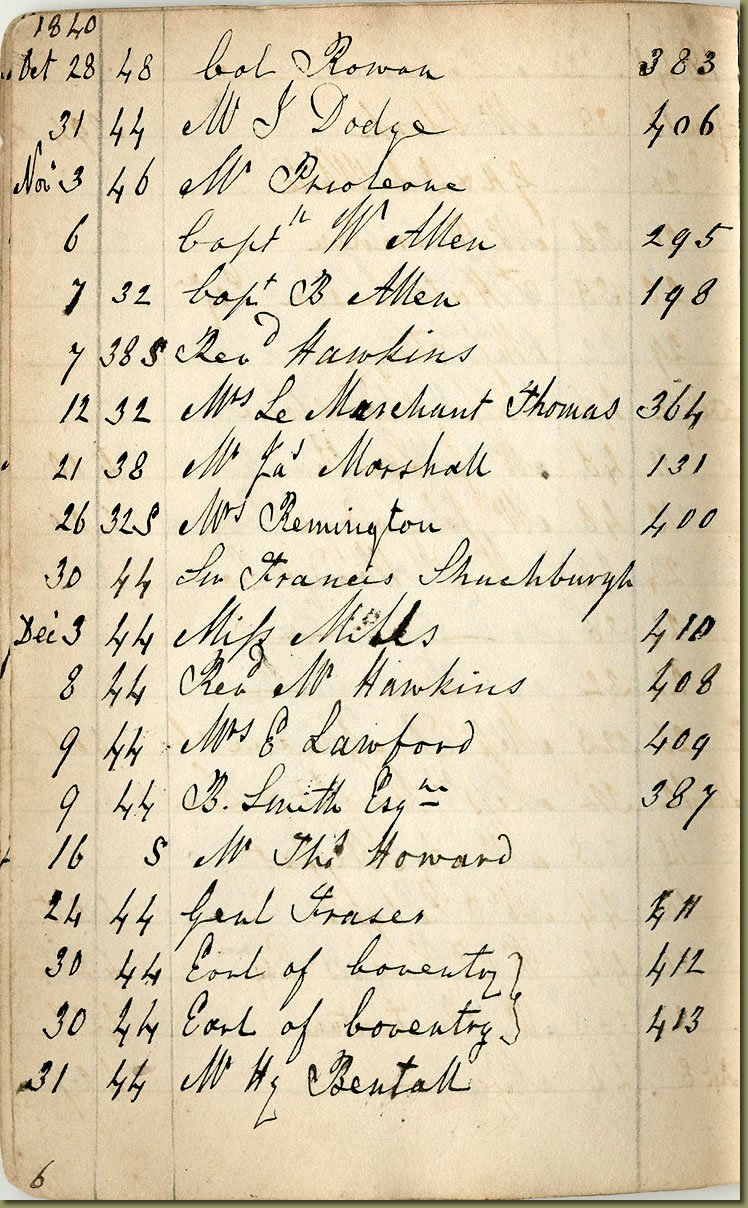 1840
Oct 28 48 Col Rowan 383
31 44 Mr J Dodge 406
Nov 3 46 Mr Prioleane
6 Captn W Allen 295
7 32 Capt B Allen 198
7 38 S Revd Hawkins
12 32 Mrs Le Marchant Thomas 364
21 38 Mr Jas Marshall 131
26 32 S Mrs Remington 400
30 44 Sir Francis Shuchburgh
Dec 3 44 Miss Mills 410
8 44 Revd Mr Hawkins 408
9 44 Mrs E Lawford 409
9 44 B. Smith Esqre 387
16 S Mr Thos Howard
24 44 Genl Fraser 411
30 44 Earl of Coventry } 412
30 44 Earl of Coventry } 413
31 44 Mr Hy Bentall
6